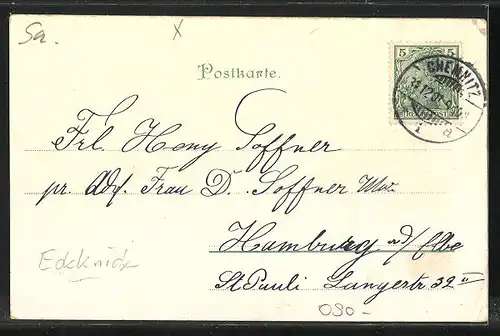 Sa. x
5 5
CHEMNITZ
Postkarte.
Frl. Hony Soffner
pr. Adr. Frau D. Soffner Wwe
Hamburg a/Elbe
Eckknick
St Pauli Langerstr 32 II
OSO-